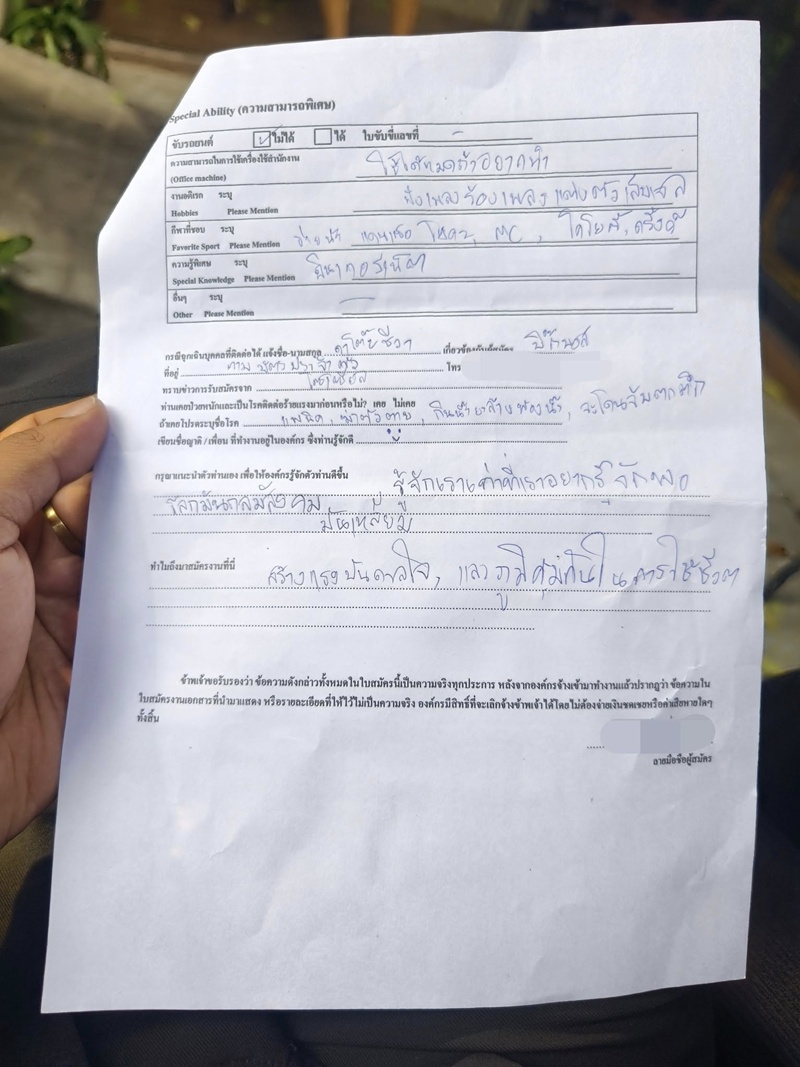 Special Ability (ความสามารถพิเศษ)
ขับรถยนต์ ไม่ได้ ได้ ใบขับขี่เลขที่ -
ความสามารถในการใช้เครื่องใช้สำนักงาน ใช้ได้หมดถ้าอยากทำ
(Office machine)
งานอดิเรก ระบุ ฟังเพลง ร้องเพลง แต่งตัว
Hobbies Please Mention
กีฬาที่ชอบ ระบุ
Favorite Sport Please Mention ว่ายน้ำ MC,
ความรู้พิเศษ ระบุ
Special Knowledge Please Mention
อื่นๆ ระบุ
Other Please Mention
กรณีฉุกเฉินบุคคลที่ติดต่อได้ แจ้งชื่อ-นามสกุล เกี่ยวข้อง
ที่อยู่ ตามบัตรประจำตัว โทร
ทราบข่าวการรับสมัครจาก โซเชียล
ท่านเคยป่วยหนักและเป็นโรคติดต่อร้ายแรงมาก่อนหรือไม่? เคย ไม่เคย
ถ้าเคยโปรดระบุชื่อโรค แพนิค, ฆ่าตัวตาย, กินน้ำยาล้างห้องน้ำ, จะโดนจับตกตึก
เขียนชื่อญาติ / เพื่อน ที่ทำงานอยู่ในองค์กร ซึ่งท่านรู้จักดี
กรุณาแนะนำตัวท่านเอง เพื่อให้องค์กรรู้จักตัวท่านดีขึ้น รู้จักเราเท่าที่เราอยากรู้จักพอ
โลกมันกลมสังคม
มันเหลี่ยม
ทำไมถึงมาสมัครงานที่นี่ สร้างแรงบันดาลใจ, และภูมิคุ้มกันในการใช้ชีวิต
ข้าพเจ้าขอรับรองว่า ข้อความดังกล่าวทั้งหมดในใบสมัครนี้เป็นความจริงทุกประการ หลังจากองค์กรจ้างเข้ามาทำงานแล้วปรากฏว่า ข้อความใน
ใบสมัครงานเอกสารที่นำมาแสดง หรือรายละเอียดที่ให้ไว้ไม่เป็นความจริง องค์กรมีสิทธิ์ที่จะเลิกจ้างข้าพเจ้าได้โดยไม่ต้องจ่ายเงินชดเชยหรือค่าเสียหายใดๆ
ทั้งสิ้น
ลายมือชื่อผู้สมัคร